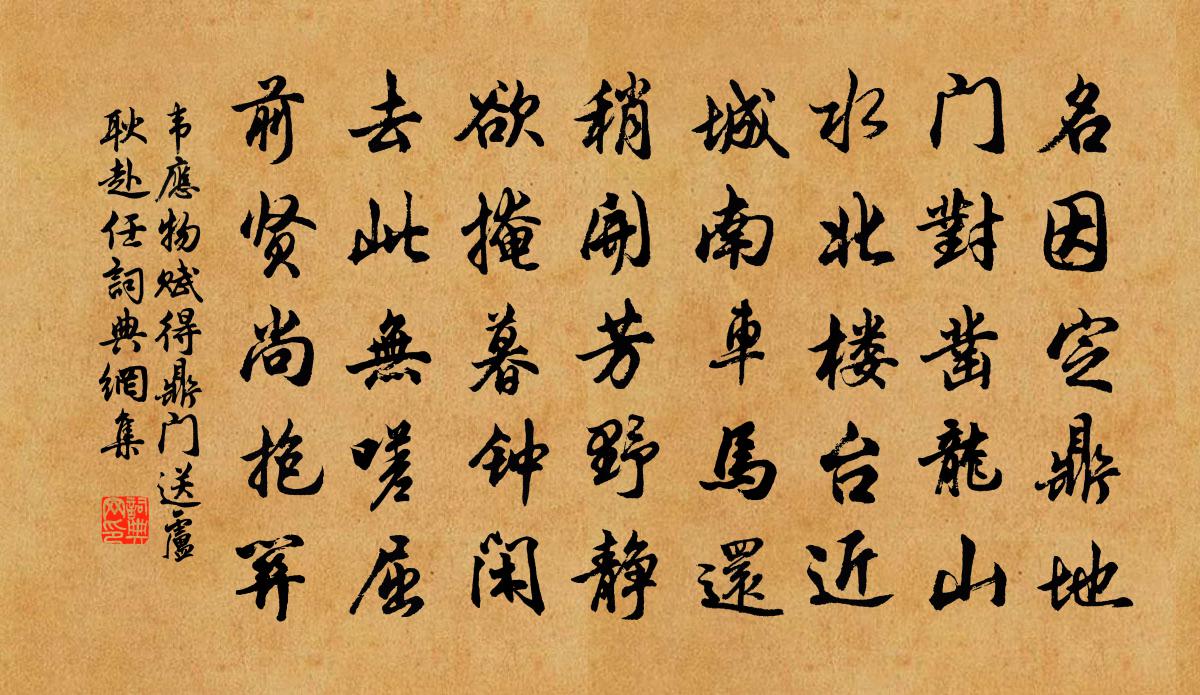 名因定鼎地
门對凿龍山
水北楼台近
城南車馬還
稍開芳野静
欲掩暮钟闲
去此無嗟屈
前贤尚抱関
韦應物赋得鼎门送盧
耿赴任詞典網集
詞典网印